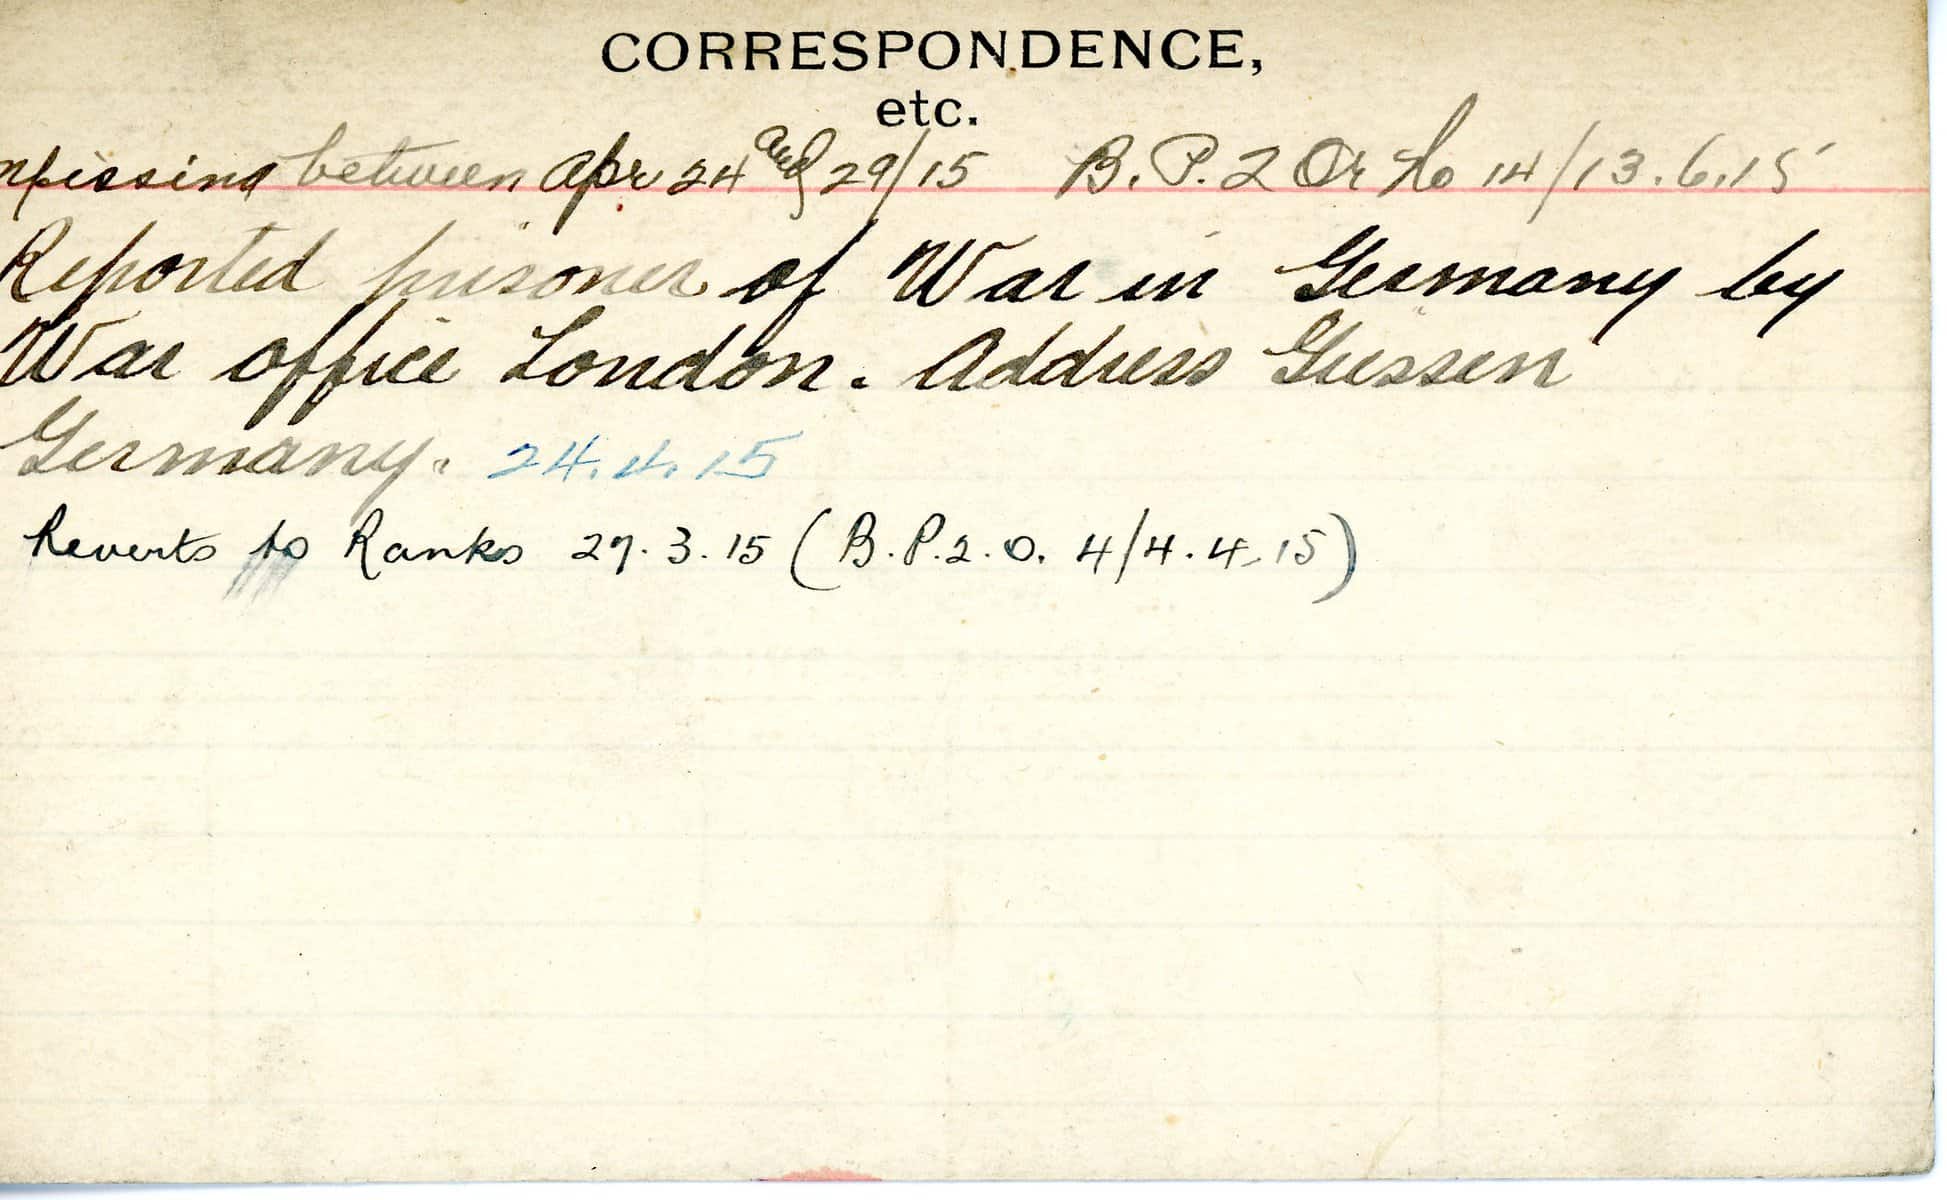 CORRESPONDENCE,
etc.
Missing between Apr 24 and 29/15 B. P. 2 Or No 14/13.6.15
Reported prisoner of War in Germany by
War office London. Address Giessen
Germany. 24.4.15
Reverts to Ranks 27.3.15 (B.P.2.O. 4/4.4.15)